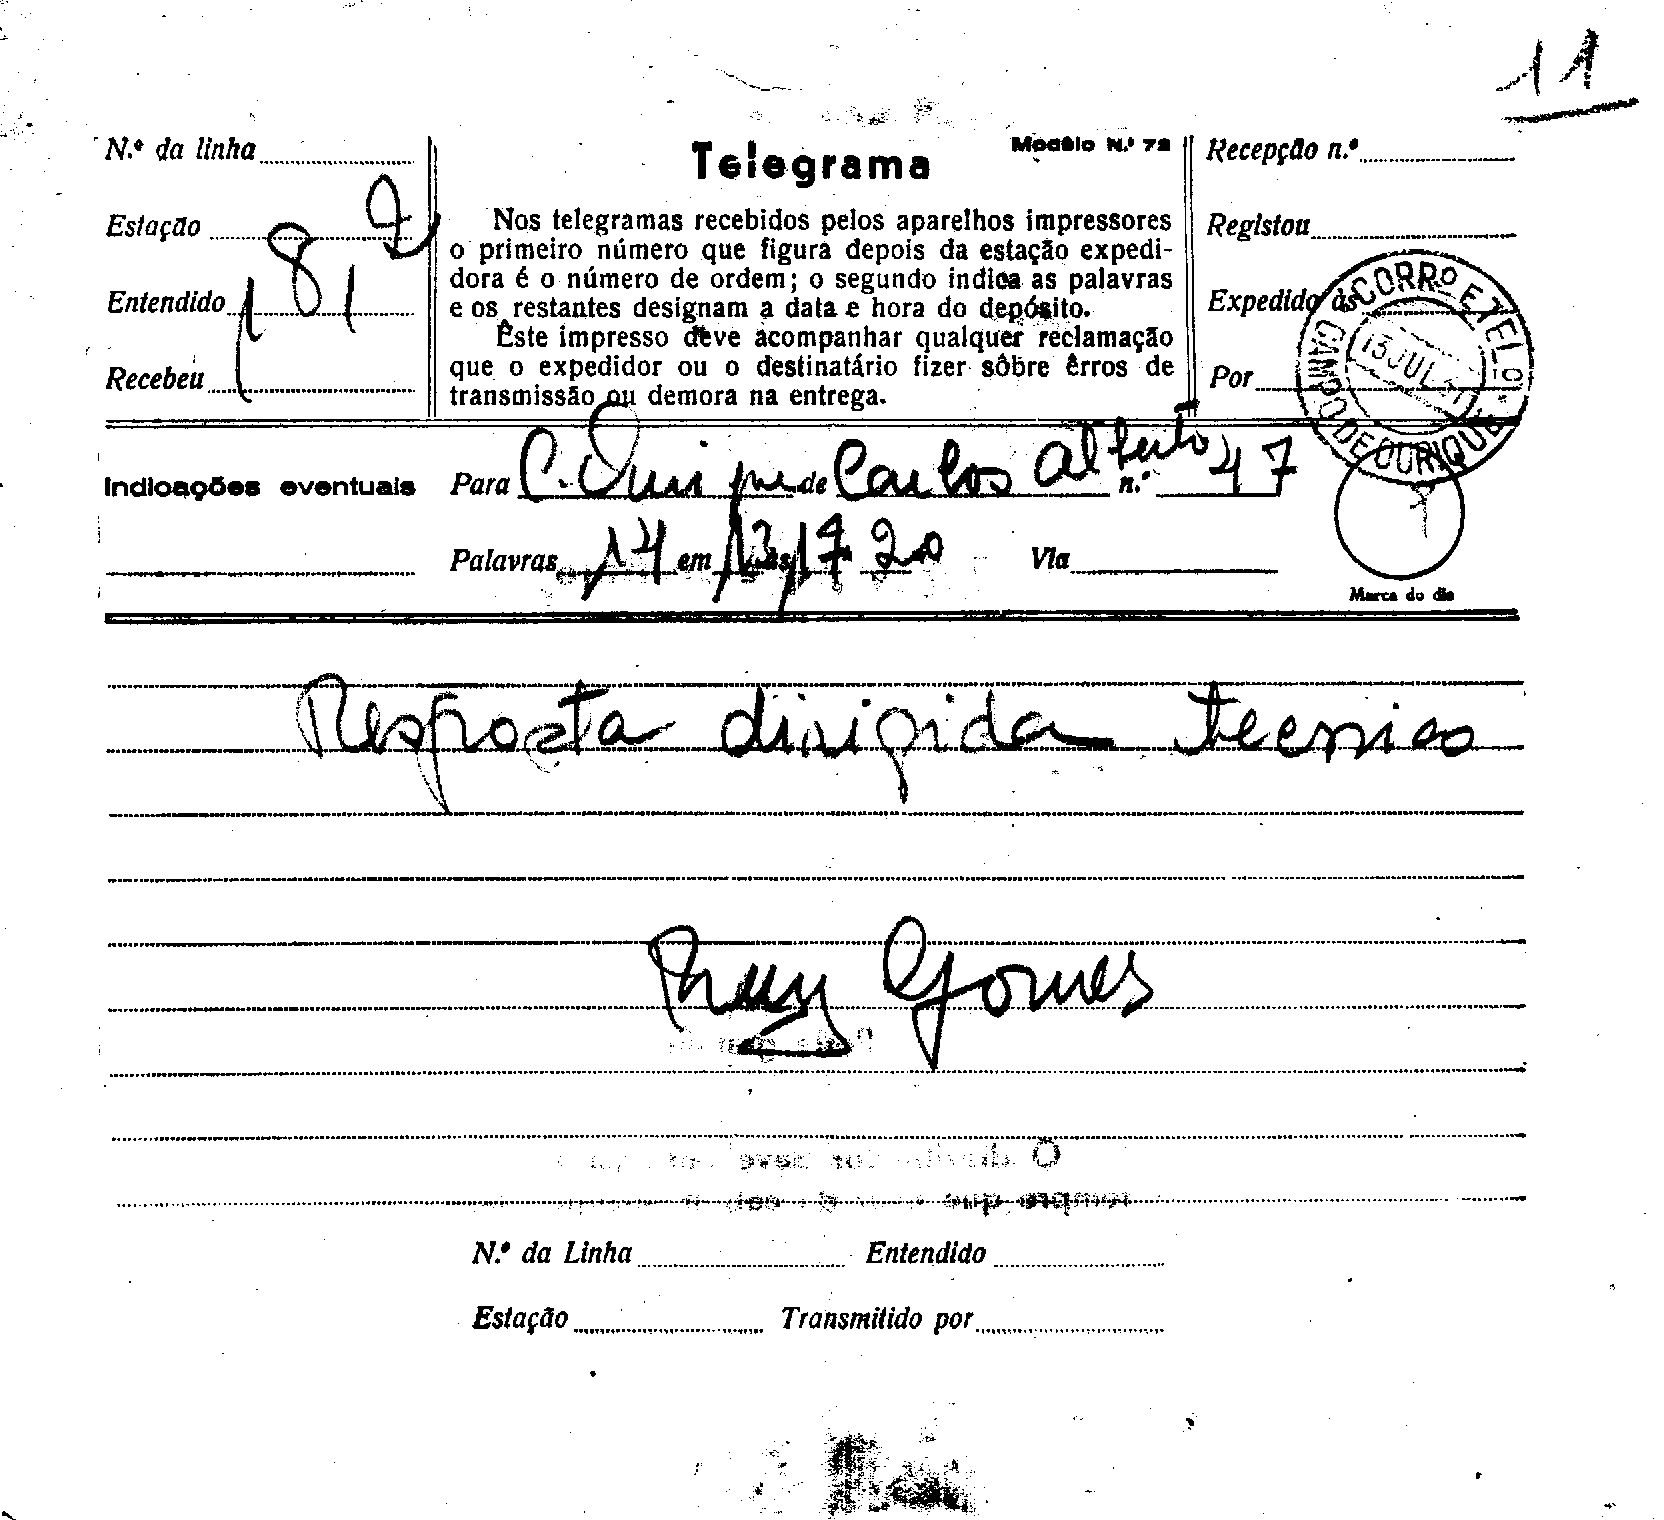 11
N.º da linha
Telegrama
Modêlo N.º 72
Recepção n.º
Estação
Nos telegramas recebidos pelos aparelhos impressores
o primeiro número que figura depois da estação expedi-
dora é o número de ordem; o segundo indica as palavras
e os restantes designam a data e hora do depósito.
Êste impresso deve acompanhar qualquer reclamação
que o expedidor ou o destinatário fizer sôbre êrros de
transmissão ou demora na entrega.
Registou
Entendido
Expedido às
Recebeu
Por
CORRº E TEL
CAMPO DE OURIQUE
13 JUL
Indicações eventuais
Para C. Ourique de Carlos Alberto n.º 47
Palavras 14 em 13 às 17 20 Via
Marca do dia
Resposta dirigida tecnico
Ruy Gomes
N.º da Linha Entendido
Estação Transmitido por